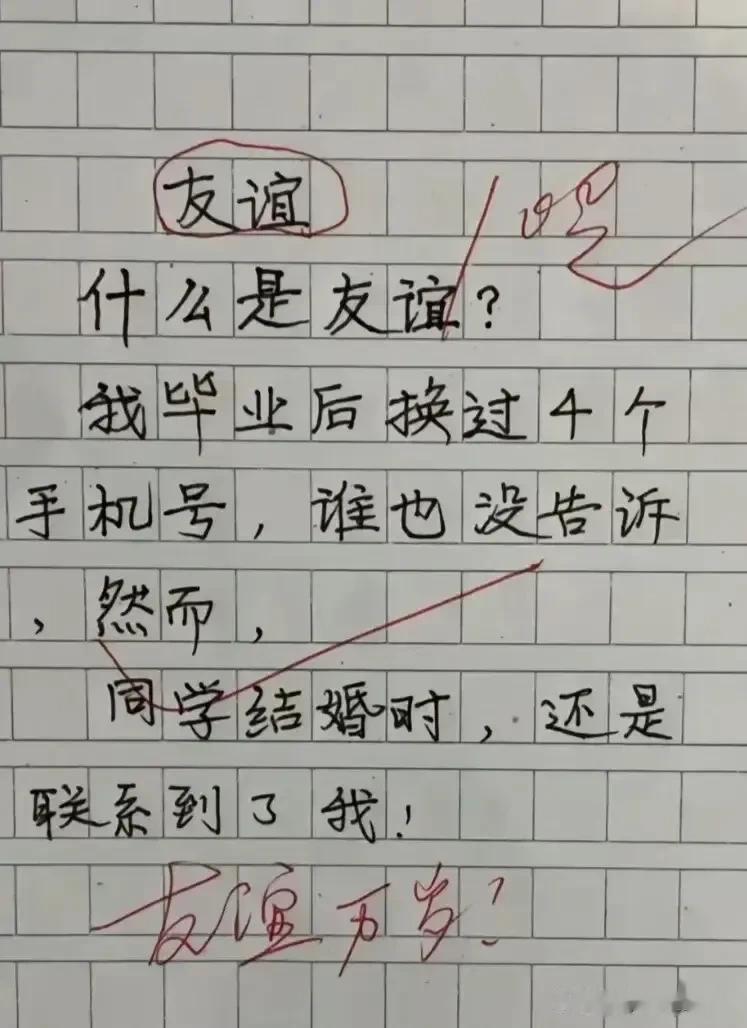 友谊
什么是友谊?
我毕业后换过4个
手机号,谁也没告诉
,然而,
同学结婚时,还是
联系到了我!
友谊万岁!